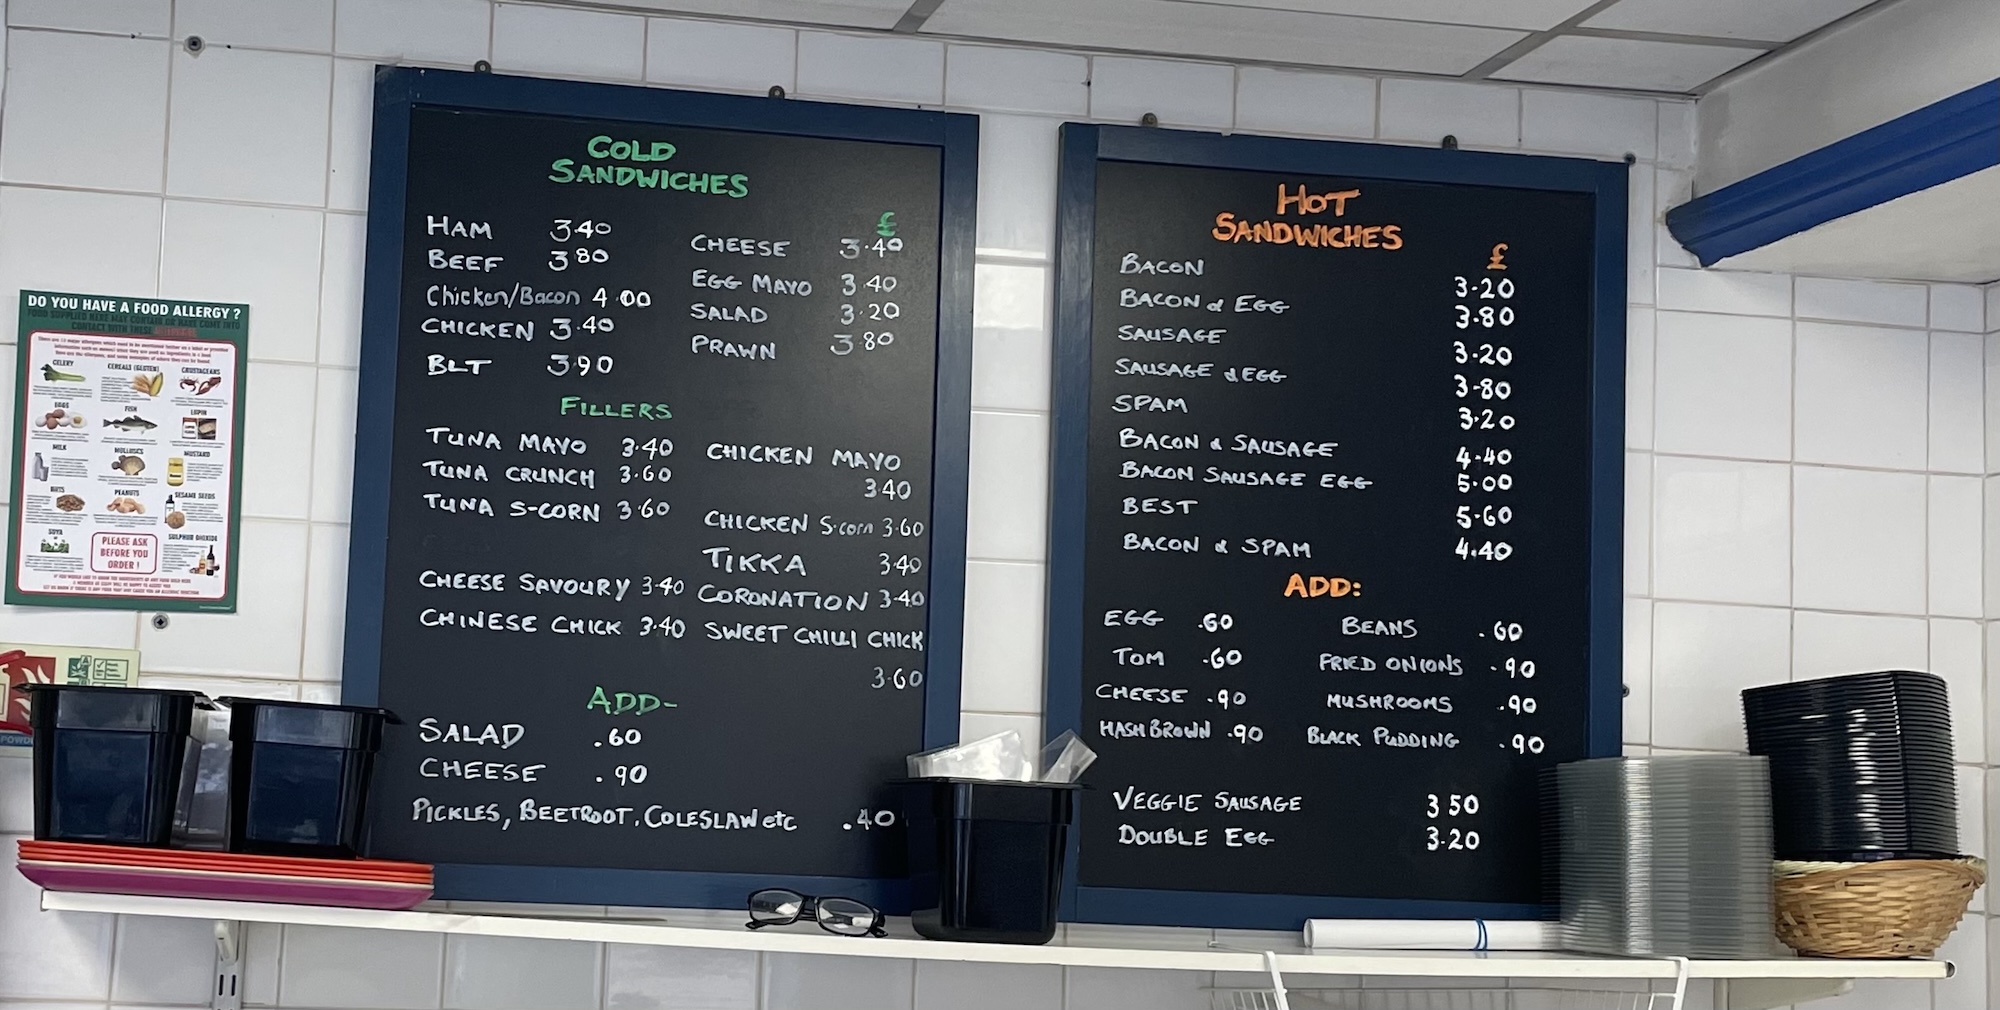 DO YOU HAVE A FOOD ALLERGY ?
FOOD SUPPLIED HERE MAY CONTAIN OR HAVE COME INTO
CONTACT WITH THESE
CELERY
CEREALS (GLUTEN)
CRUSTACEANS
EGGS
FISH
LUPIN
MILK
MOLLUSCS
MUSTARD
NUTS
PEANUTS
SESAME SEEDS
SOYA
PLEASE ASK
BEFORE YOU
ORDER !
SULPHUR DIOXIDE
COLD
SANDWICHES
HAM 3.40
BEEF 3 80
Chicken/Bacon 4.00
CHICKEN 3.40
BLT 3.90
£
CHEESE 3.40
EGG MAYO 3.40
SALAD 3.20
PRAWN 3.80
FILLERS
TUNA MAYO 3.40
TUNA CRUNCH 3.60
TUNA S-CORN 3.60
CHEESE SAVOURY 3.40
CHINESE CHICK 3.40
CHICKEN MAYO
3.40
CHICKEN S.corn 3.60
TIKKA 3.40
CORONATION 3.40
SWEET CHILLI CHICK
3.60
ADD-
SALAD .60
CHEESE .90
PICKLES, BEETROOT, COLESLAW etc .40
HOT
SANDWICHES
£
BACON 3.20
BACON & EGG 3.80
SAUSAGE 3.20
SAUSAGE & EGG 3.80
SPAM 3.20
BACON & SAUSAGE 4.40
BACON SAUSAGE EGG 5.00
BEST 5.60
BACON & SPAM 4.40
ADD:
EGG .60
TOM .60
CHEESE .90
HASH BROWN .90
BEANS .60
FRIED ONIONS .90
MUSHROOMS .90
BLACK PUDDING .90
VEGGIE SAUSAGE 3 50
DOUBLE EGG 3.20